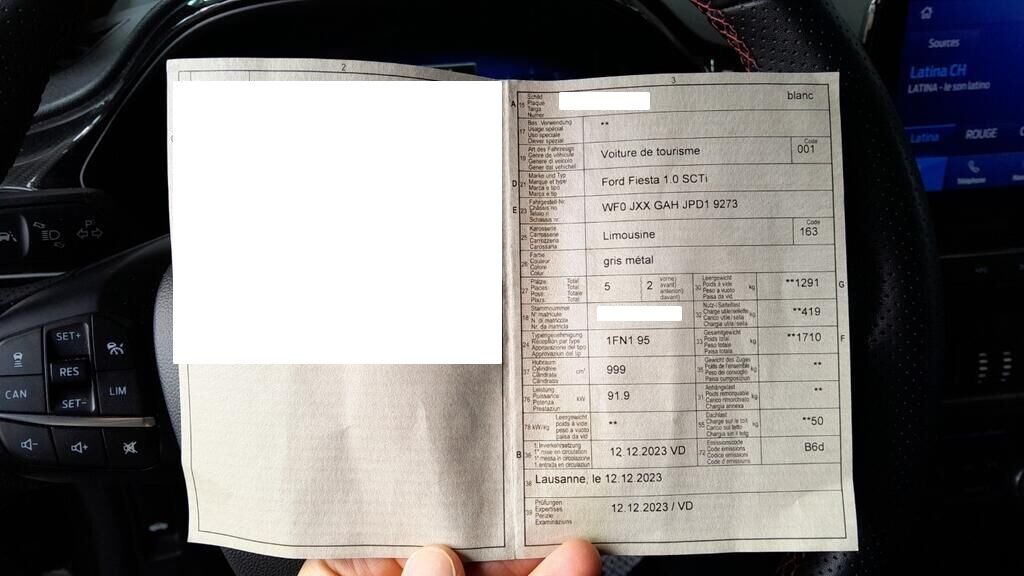 2
3
A
15
Schild
Plaque
Targa
Numer
blanc
17
Bes. Verwendung
Usage spécial
Uso speciale
Diever spezial
**
19
Art des Fahrzeugs
Genre de véhicule
Genere di veicolo
Gener dal vehichel
Voiture de tourisme
Code
001
D
21
Marke und Typ
Marque et type
Marca e tipo
Marca e tip
Ford Fiesta 1.0 SCTi
E
23
Fahrgestell-Nr.
Châssis no
Telaio n.
Schassis nr.
WF0 JXX GAH JPD1 9273
25
Karosserie
Carrosserie
Carrozzeria
Carossaria
Limousine
Code
163
26
Farbe
Couleur
Colore
Colur
gris métal
27
Plätze Total
Places Total
Posti Totale
Plazs Total
5
2
vorne)
avant)
anteriori)
davant)
30
Leergewicht
Poids à vide
Peso a vuoto
Paisa da vid
kg
**1291
G
18
Stammnummer
N° matricule
N. di matricola
Nr. da matricla
32
Nutz-/Sattellast
Charge utile/sellette
Carico utile/sella
Chargia utila/sella
kg
**419
24
Typengenehmigung
Réception par type
Approvazione del tipo
Approvaziun dal tip
1FN1 95
33
Gesamtgewicht
Poids total
Peso totale
Paisa totala
kg
**1710
F
37
Hubraum
Cylindrée
Cilindrata
Cilindrada
cm³
999
35
Gewicht des Zuges
Poids de l'ensemble
Peso del convoglio
Paisa cumposiziun
kg
**
76
Leistung
Puissance
Potenza
Prestaziun
kW
91.9
31
Anhängelast
Poids remorquable
Carico rimorchiato
Chargia annexa
kg
**
78 kW/kg
Leergewicht
poids à vide
peso a vuoto
paisa da vid
**
55
Dachlast
Charge sur le toit
Carico sul tetto
Chargia sin il tetg
kg
**50
B
36
1. Inverkehrsetzung
1re mise en circulation
1a messa in circolazione
1. entrada en circulaziun
12 12.2023 VD
72
Emissionscode
Code émissions
Codice emissioni
Code d'emissiuns
B6d
38
Lausanne, le 12.12.2023
39
Prüfungen
Expertises
Perizie
Examinaziuns
12.12.2023 / VD
SET+
RES
SET-
CAN
LIM
Sources
Latina CH
LATINA - le son latino
Latina
ROUGE
Téléphone